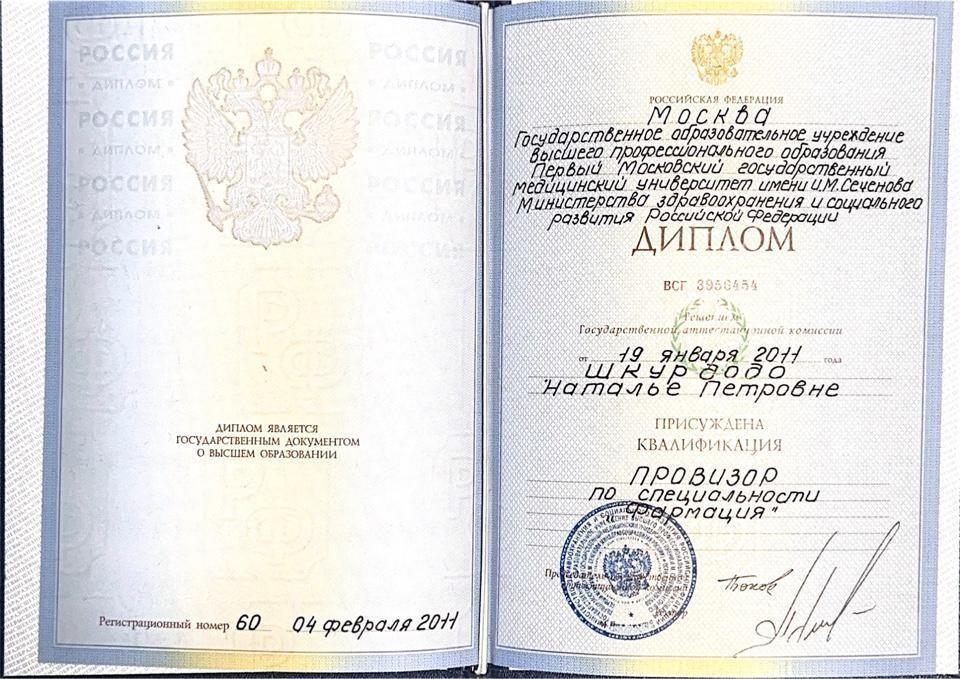 РОССИЯ РОССИЯ
• ДИПЛОМ • • ДИПЛОМ •
РОССИЯ РОССИЯ
• ДИПЛОМ • • ДИПЛОМ •
РОССИЯ РОССИЯ
• ДИПЛОМ • • ДИПЛОМ •
РОССИЯ РОССИЯ
ДИПЛОМ ЯВЛЯЕТСЯ
ГОСУДАРСТВЕННЫМ ДОКУМЕНТОМ
О ВЫСШЕМ ОБРАЗОВАНИИ
Регистрационный номер 60 04 февраля 2011
РОССИЙСКАЯ ФЕДЕРАЦИЯ
Москва
Государственное образовательное учреждение
высшего профессионального образования
Первый Московский государственный
медицинский университет имени И.М.Сеченова
Министерства здравоохранения и социального
развития Российской Федерации
ДИПЛОМ
ВСГ 3956454
Решением
Государственной аттестационной комиссии
от 19 января 2011 года
ШКУРДОДО
Наталье Петровне
ПРИСУЖДЕНА
КВАЛИФИКАЦИЯ
ПРОВИЗОР
по специальности
"Фармация"